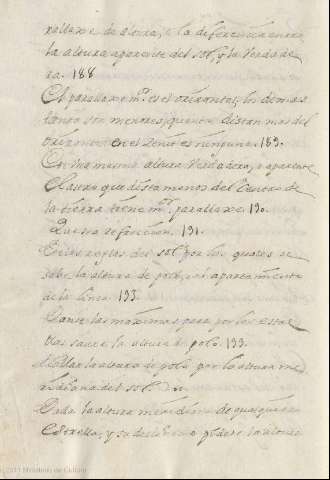 rallaxe de altura, es la diferencia entre
la altura aparente del sol, y la verdade
ra. 188
El parallaxe mr. es el orizontal, los demas
tanto son menores, quanto distan mas del
orizonte en el Zenit es ninguno. 189.
En una misma altura verdadera, o aparente
El astro que dista menos del Centro de
la tierra tiene mr. parallaxe. 190.
Que sea refraccion. 191.
reglas del sol por las quales se
sabe la altura de polo, o el apartamiento
de la linea. 193.
Danse las maximas para por los esta
dos sacar la altura de polo. 193.
Hallar la altura de polo por la altura me
ridiona del sol.
Dada la altura meridiana de qualquiera
Estrella, y su declinacion la altura
2011 Ministerio de Cultura